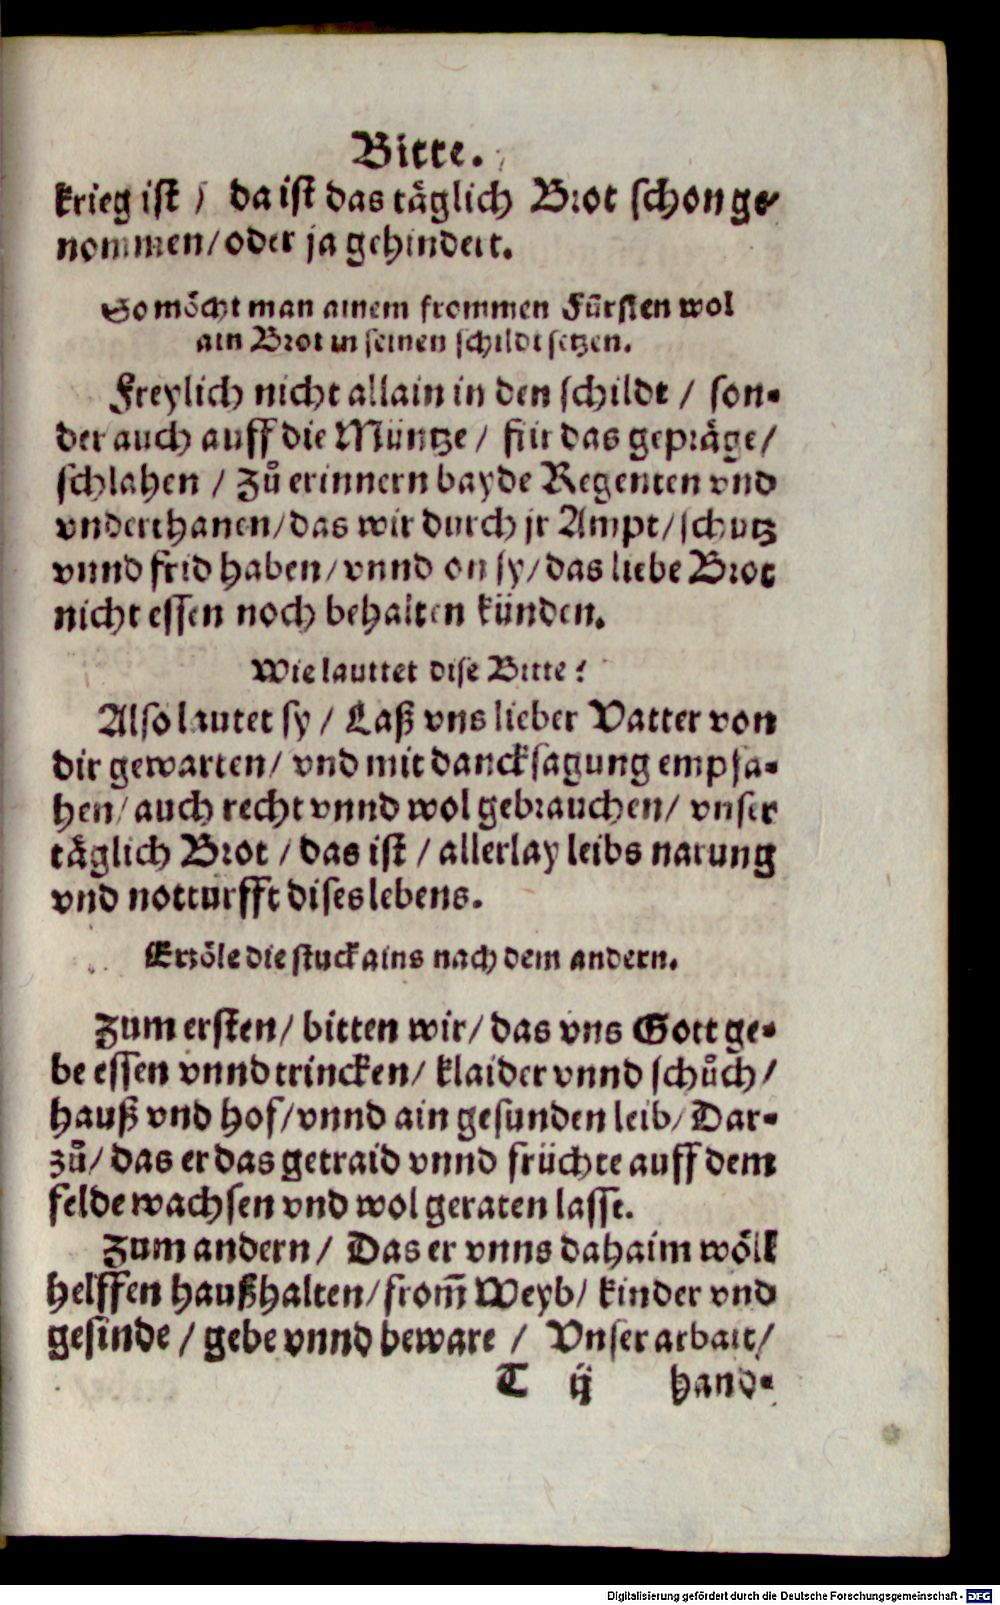 Bitte.
krieg ist / da ist das täglich Brot schon ge-
nommen/ oder ja gehindert.
So möcht man ainem frommen Fürsten wol
ain Brot in seinen schildt setzen.
Freylich nicht allain in den schildt / son-
der auch auff die Müntze / für das gepräge/
schlahen / Zů erinnern bayde Regenten vnd
vnderthanen/ das wir durch jr Ampt/ schutz
vnnd frid haben/ vnnd on sy/ das liebe Brot
nicht essen noch behalten künden.
Wie lauttet dise Bitte?
Also lautet sy / Laß vns lieber Vatter von
dir gewarten/ vnd mit dancksagung empfa-
hen/ auch recht vnnd wol gebrauchen/ vnser
täglich Brot / das ist / allerlay leibs narung
vnd notturfft dises lebens.
Erzöle die stuck ains nach dem andern.
Zum ersten/ bitten wir/ das vns Gott ge-
be essen vnnd trincken/ klaider vnnd schůch/
hauß vnd hof/ vnnd ain gesunden leib/ Dar-
zů/ das er das getraid vnnd früchte auff dem
felde wachsen vnd wol geraten lasse.
Zum andern/ Das er vnns dahaim wöll
helffen haußhalten/ from̃ Weyb/ kinder vnd
gesinde / gebe vnnd beware / Vnser arbait/
T ij hand-
Digitalisierung gefördert durch die Deutsche Forschungsgemeinschaft - DFG